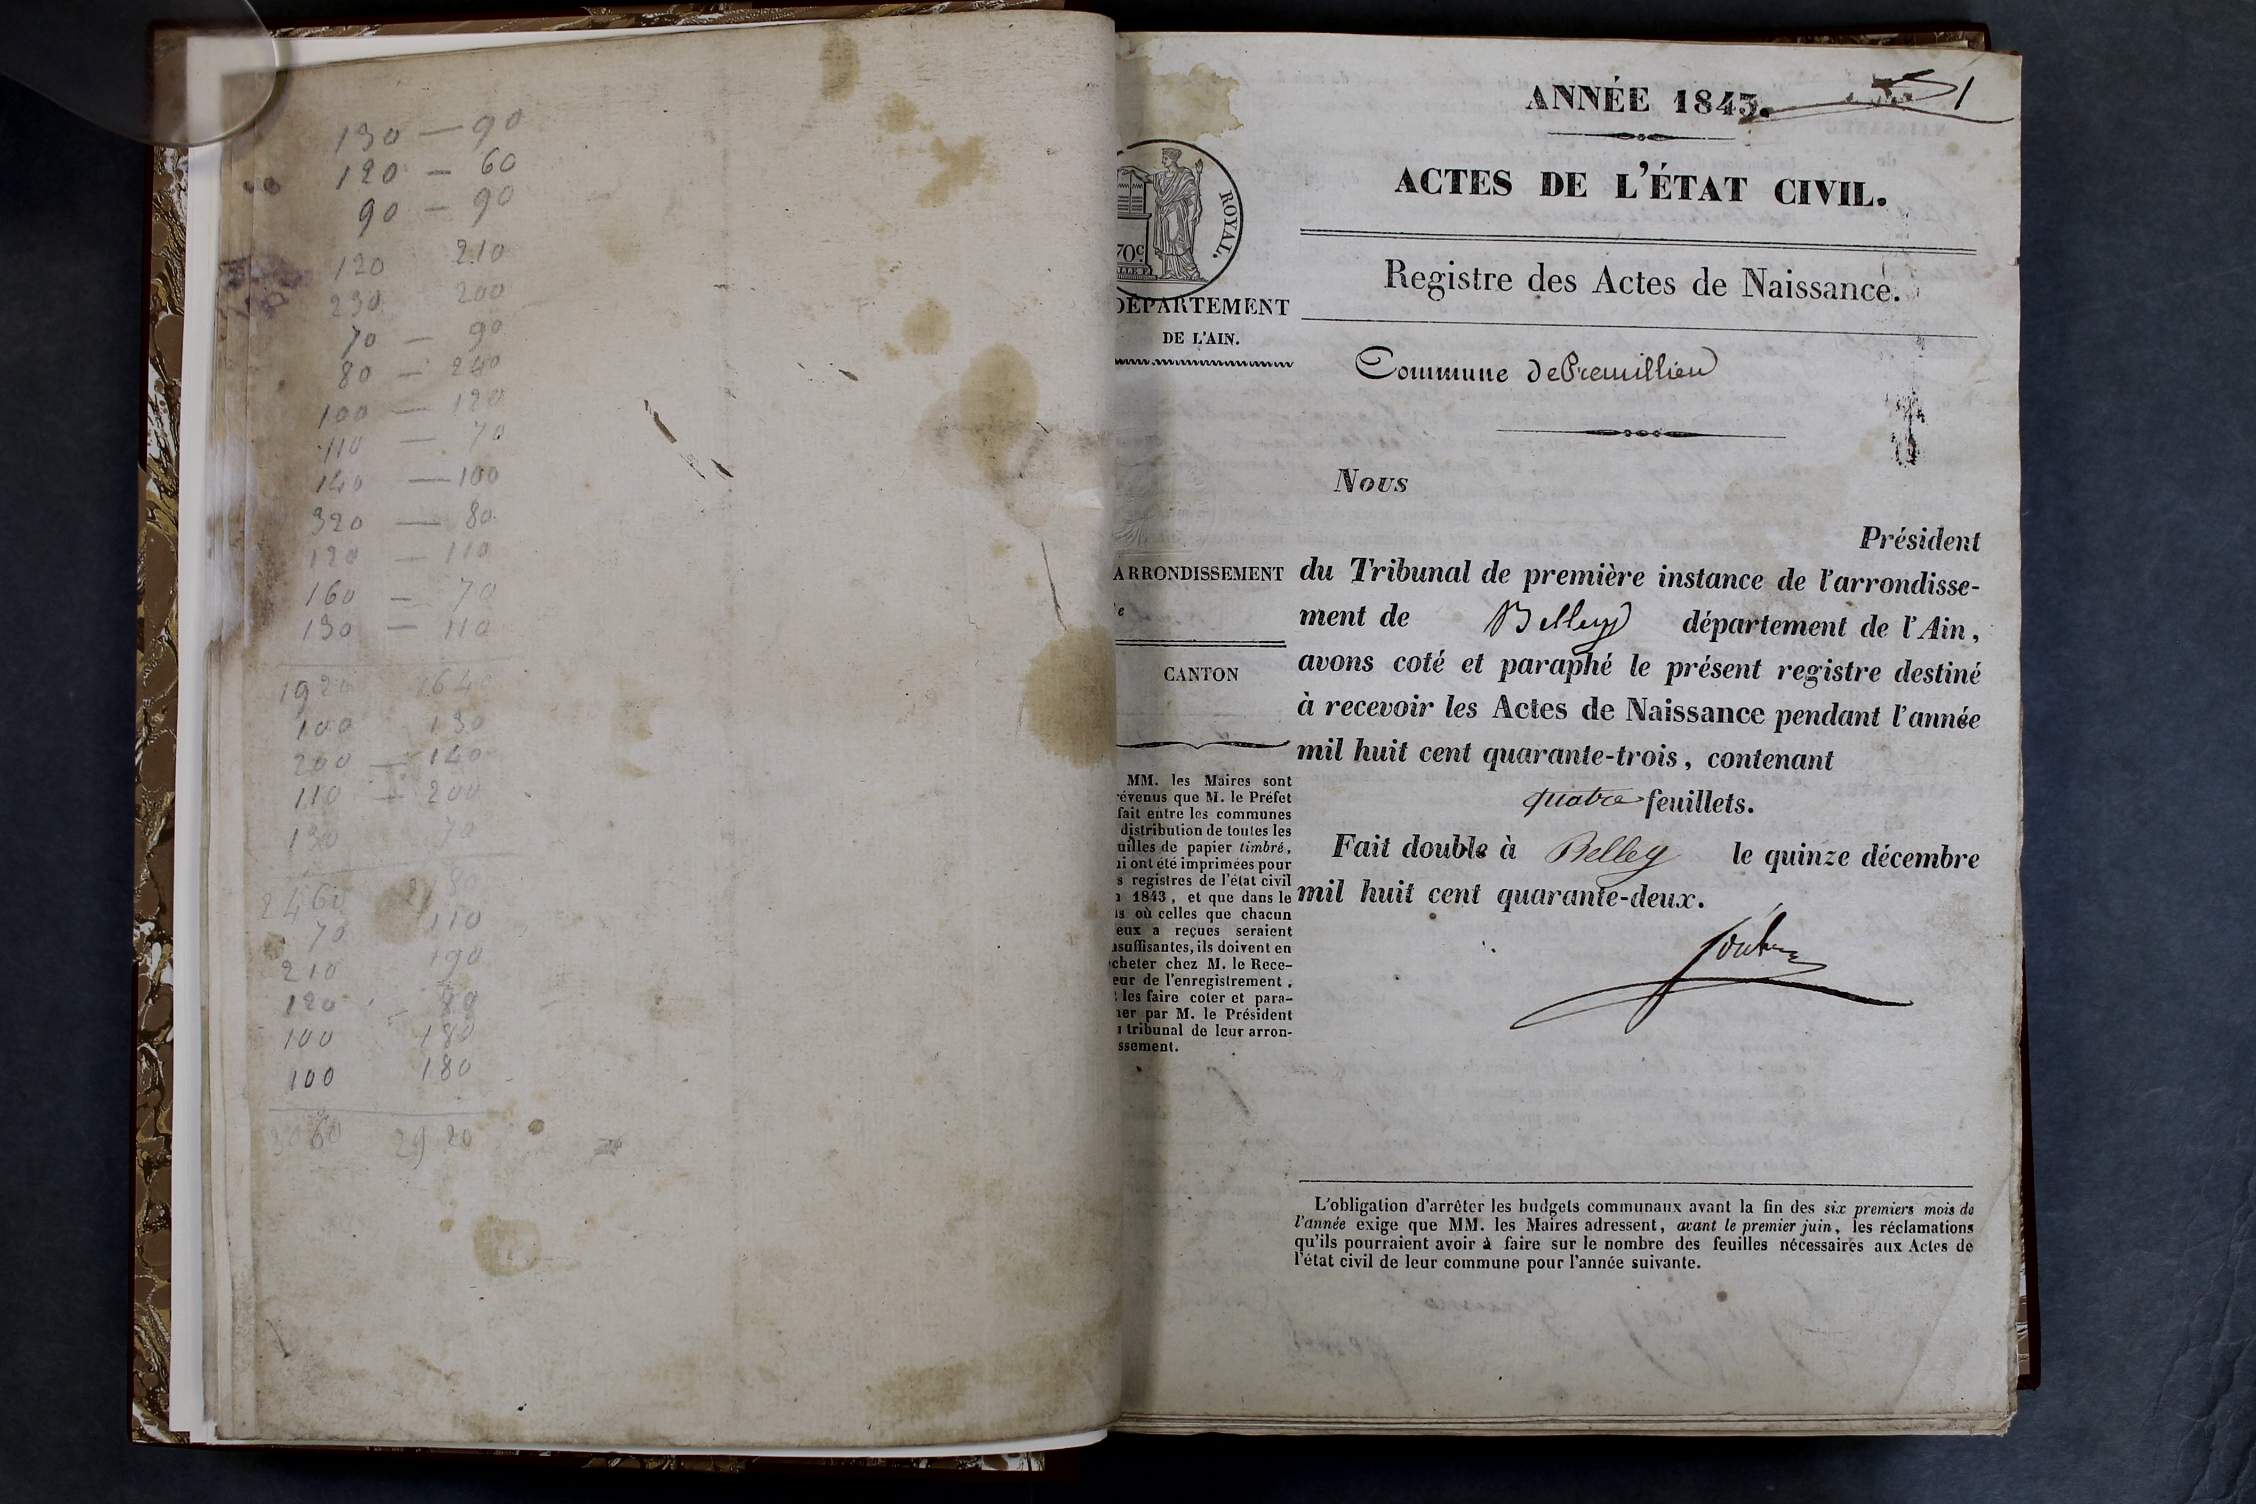 130 — 90
120 — 60
90 — 90
120 210
230 200
70 — 90
80 — 240
100 — 120
110 — 70
140 — 100
320 — 80
120 — 110
160 — 70
130 — 110
1920 1640
100 130
200 — 140
110 — 200
130 70
2460
70 110
210 190
120 88
100 180
100 180
3060 2920
ANNÉE 1843.
1
ACTES DE L'ÉTAT CIVIL.
Registre des Actes de Naissance.
Commune de Premillieu
ROYAL.
70c
DÉPARTEMENT
DE L'AIN.
ARRONDISSEMENT
CANTON
MM. les Maires sont
révenus que M. le Préfet
fait entre les communes
distribution de toutes les
uilles de papier timbré,
ui ont été imprimées pour
s registres de l'état civil
1843, et que dans le
as où celles que chacun
eux a reçues seraient
nsuffisantes, ils doivent en
cheter chez M. le Rece-
eur de l'enregistrement,
les faire coter et para-
her par M. le Président
u tribunal de leur arron-
ssement.
Nous
Président
du Tribunal de première instance de l'arrondisse-
ment de Belley département de l'Ain,
avons coté et paraphé le présent registre destiné
à recevoir les Actes de Naissance pendant l'année
mil huit cent quarante-trois, contenant
quatre feuillets.
Fait double à Belley le quinze décembre
mil huit cent quarante-deux.
L'obligation d'arrêter les budgets communaux avant la fin des six premiers mois de
l'année exige que MM. les Maires adressent, avant le premier juin, les réclamations
qu'ils pourraient avoir à faire sur le nombre des feuilles nécessaires aux Actes de
l'état civil de leur commune pour l'année suivante.